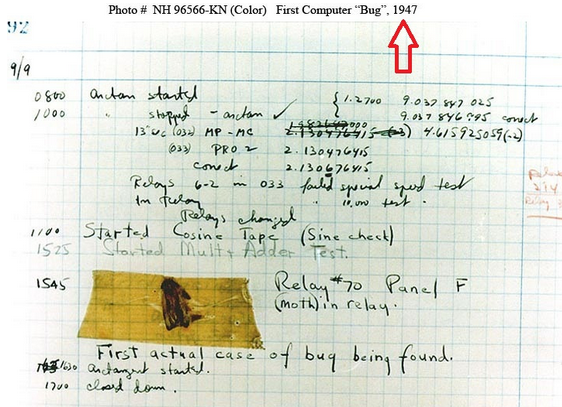 Photo # NH 96566-KN (Color) First Computer “Bug”, 1947
92
9/9
0800 Antan started
1000 " stopped - antan ✓ { 1.2700 9.037 847 025
9.037 846 995 conect
13"uc (033) MP - MC 2.130476415 (-3) 4.615925059(-2)
(033) PRO 2 2.130476415
conect 2.130676415
Relays 6-2 in 033 failed special speed test
In Relay " 10,000 test.
Relays changed
1100 Started Cosine Tape (Sine check)
1525 Started Mult + Adder Test.
1545 Relay #70 Panel F
(moth) in relay.
First actual case of bug being found.
1630 antangent started.
1700 closed down.